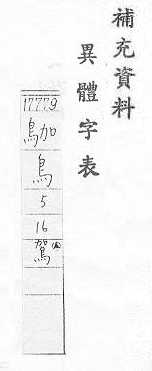 補充資料
異體字表
17779
鳥
5
16